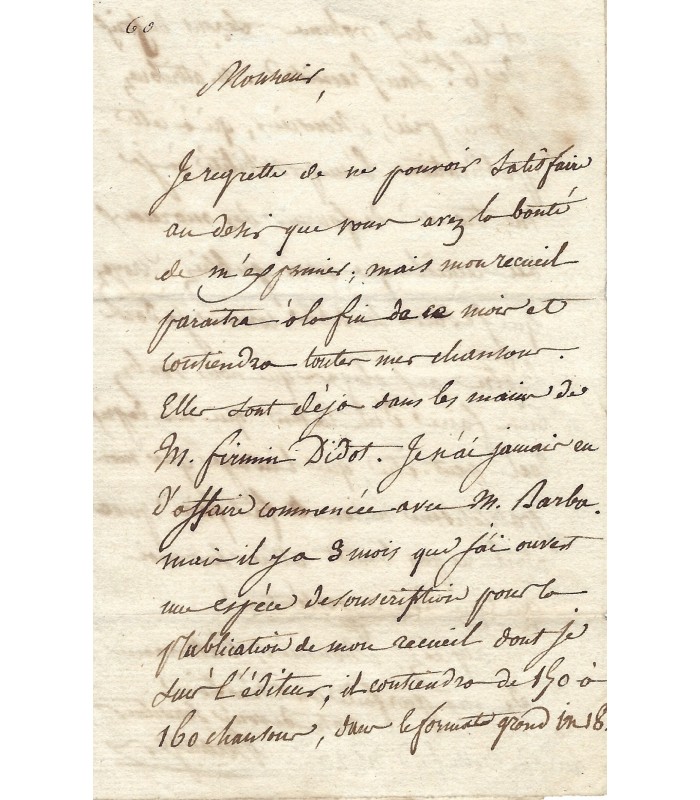 60
Monsieur,
Je regrette de ne pouvoir satisfaire
au desir que vous avez la bonté
de m'exprimer; mais mon recueil
paraitra à la fin de ce mois et
contiendra toutes mes chansons.
Elles sont déja dans les mains de
M. firmin Didot. Je n'ai jamais eu
d'affaire commencée avec M. Barba.
mais il y a 3 mois que j'ai ouvert
une espéce de souscription pour la
publication de mon recueil dont je
suis l'éditeur; il contiendra de 150 à
160 chansons, dans le format grand in 18.